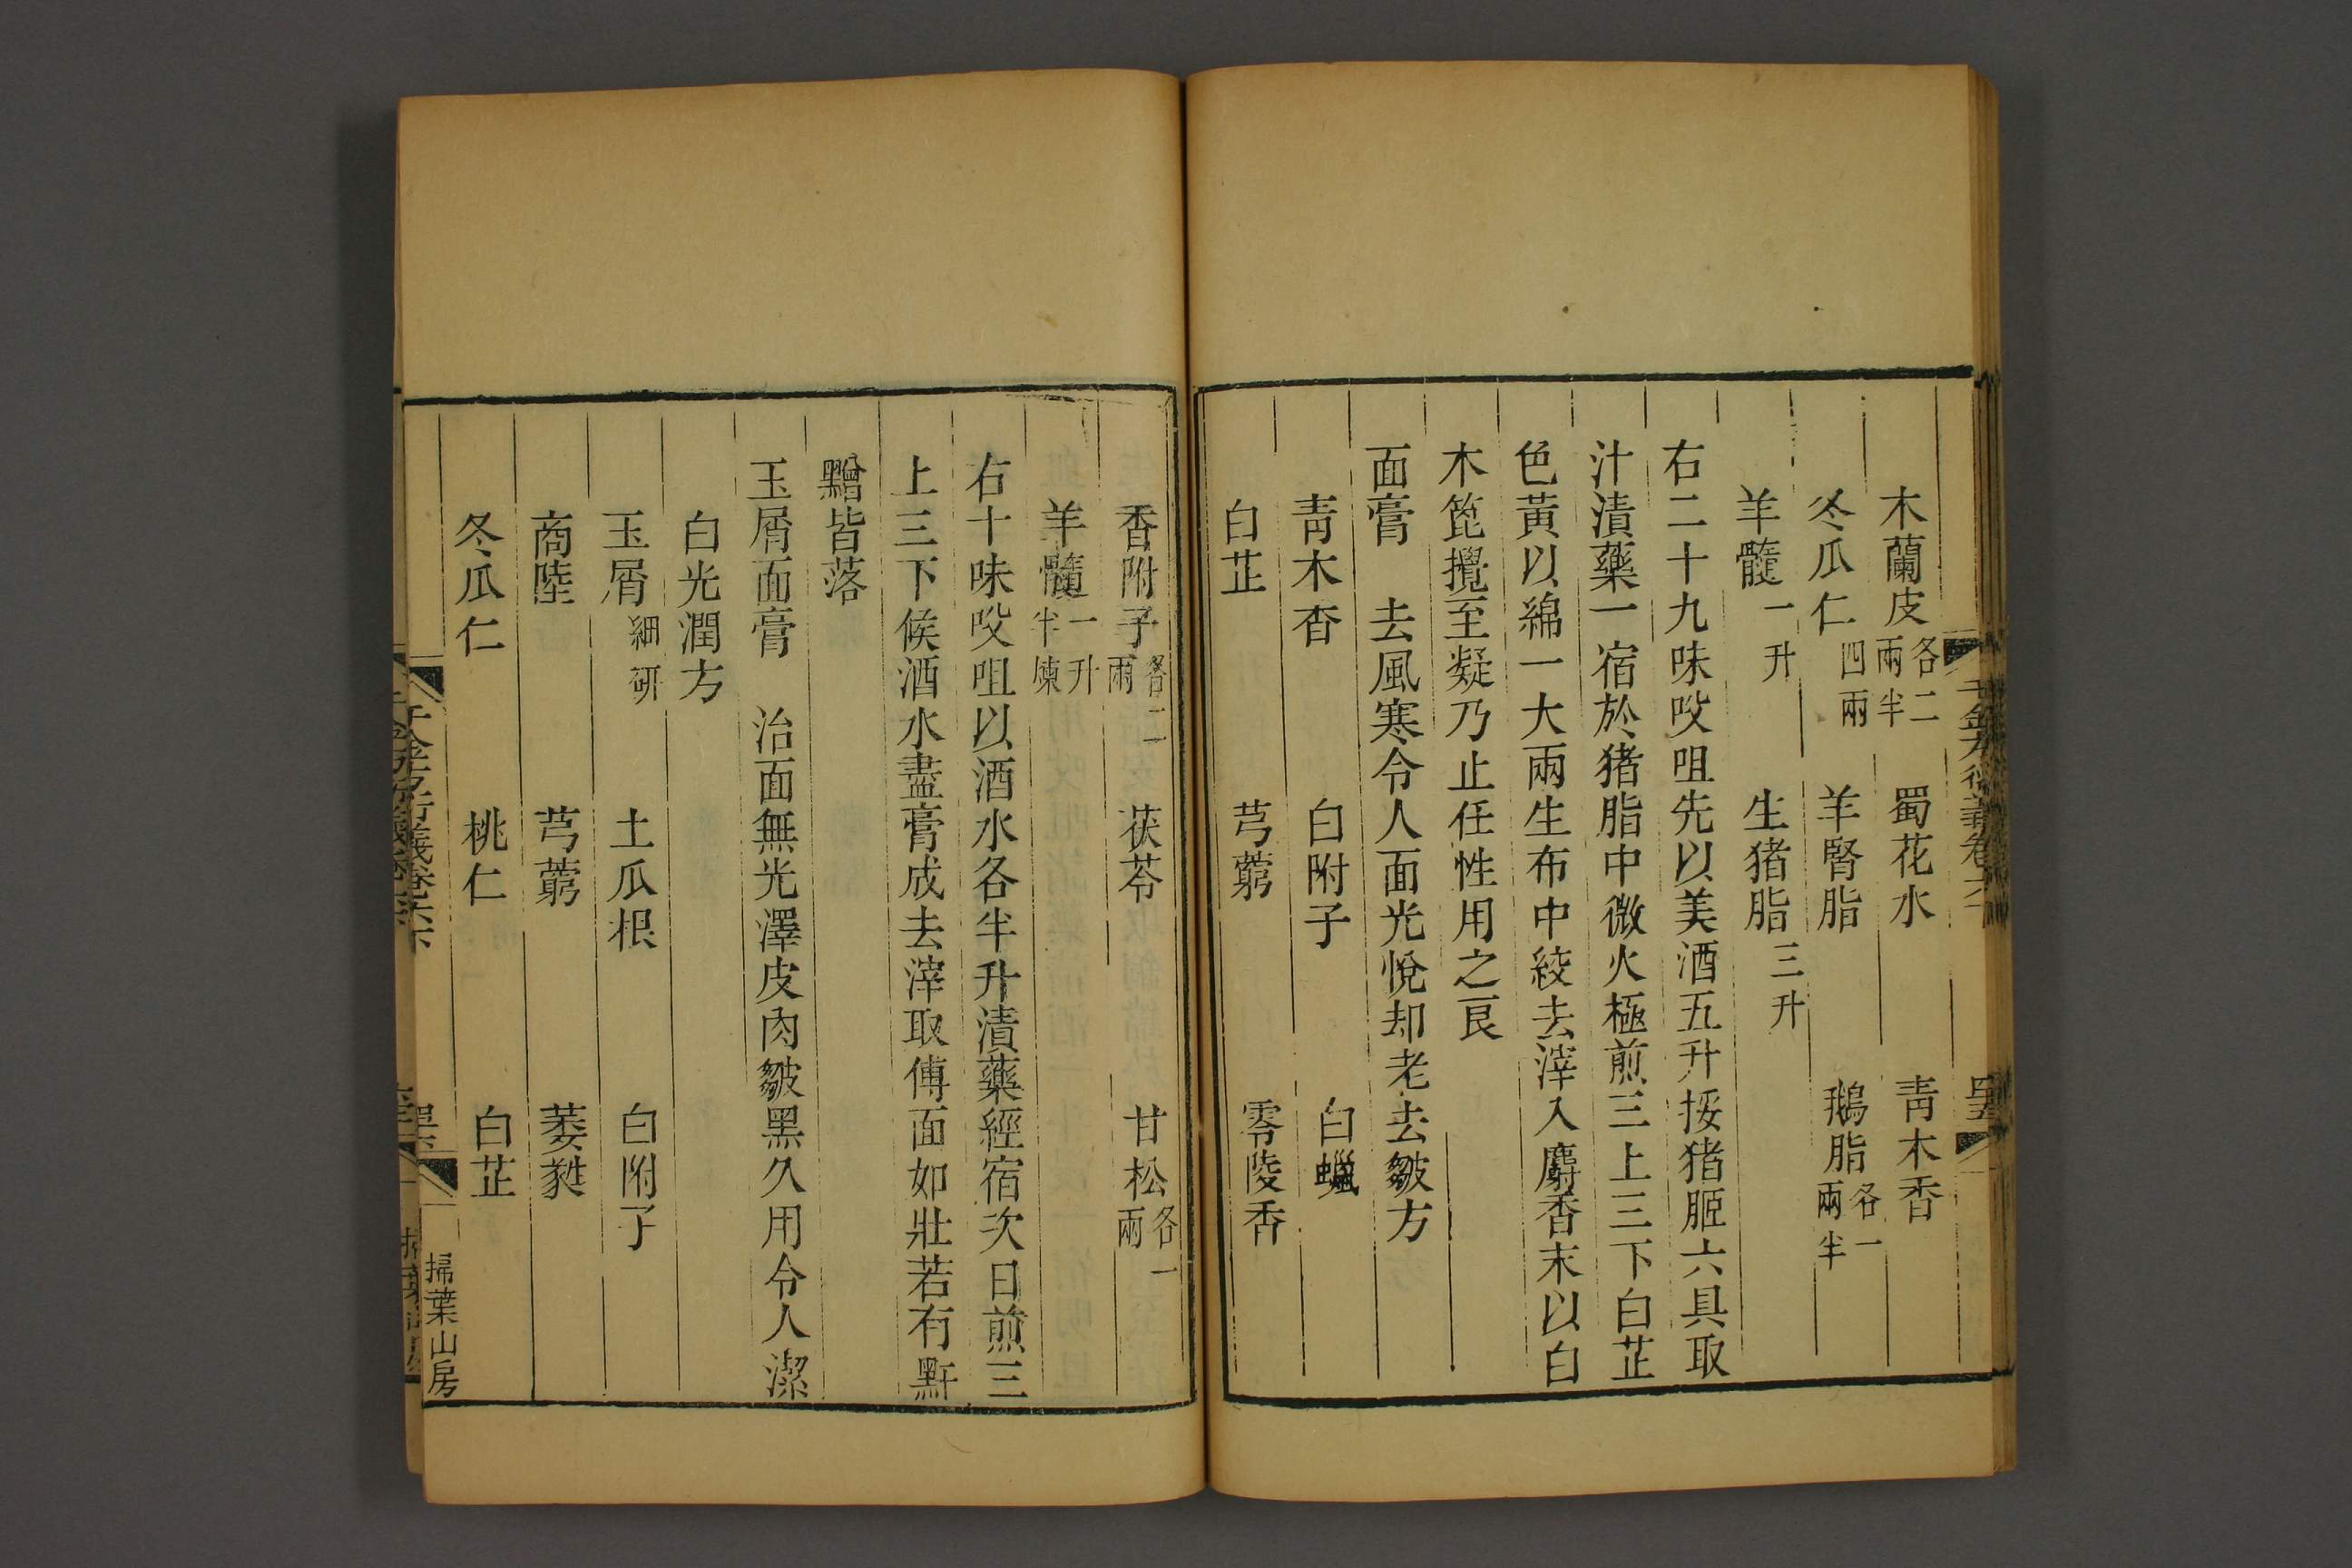 木蘭皮 各二兩半 蜀花水 青木香
冬瓜仁 四兩 羊腎脂 鵝脂 各一兩半
羊髓 一升 生猪脂 三升
右二十九味㕮咀先以美酒五升挼猪胰六具取
汁漬藥一宿於猪脂中微火極煎三上三下白芷
色黃以綿一大兩生布中絞去滓入麝香末以白
木篦攪至凝乃止任性用之良
面膏 去風寒令人面光悅却老去皺方
青木香 白附子 白蠟
白芷 芎藭 零陵香
香附子 各二兩 茯苓 甘松 各一兩
羊髓 一升半煉
右十味㕮咀以酒水各半升漬藥經宿次日煎三
上三下候酒水盡膏成去滓取傅面如壯若有䵟
䵴皆落
玉屑面膏 治面無光澤皮肉皺黑久用令人潔
白光潤方
玉屑 細研 土瓜根 白附子
商陸 芎藭 萎蕤
冬瓜仁 桃仁 白芷
掃葉山房